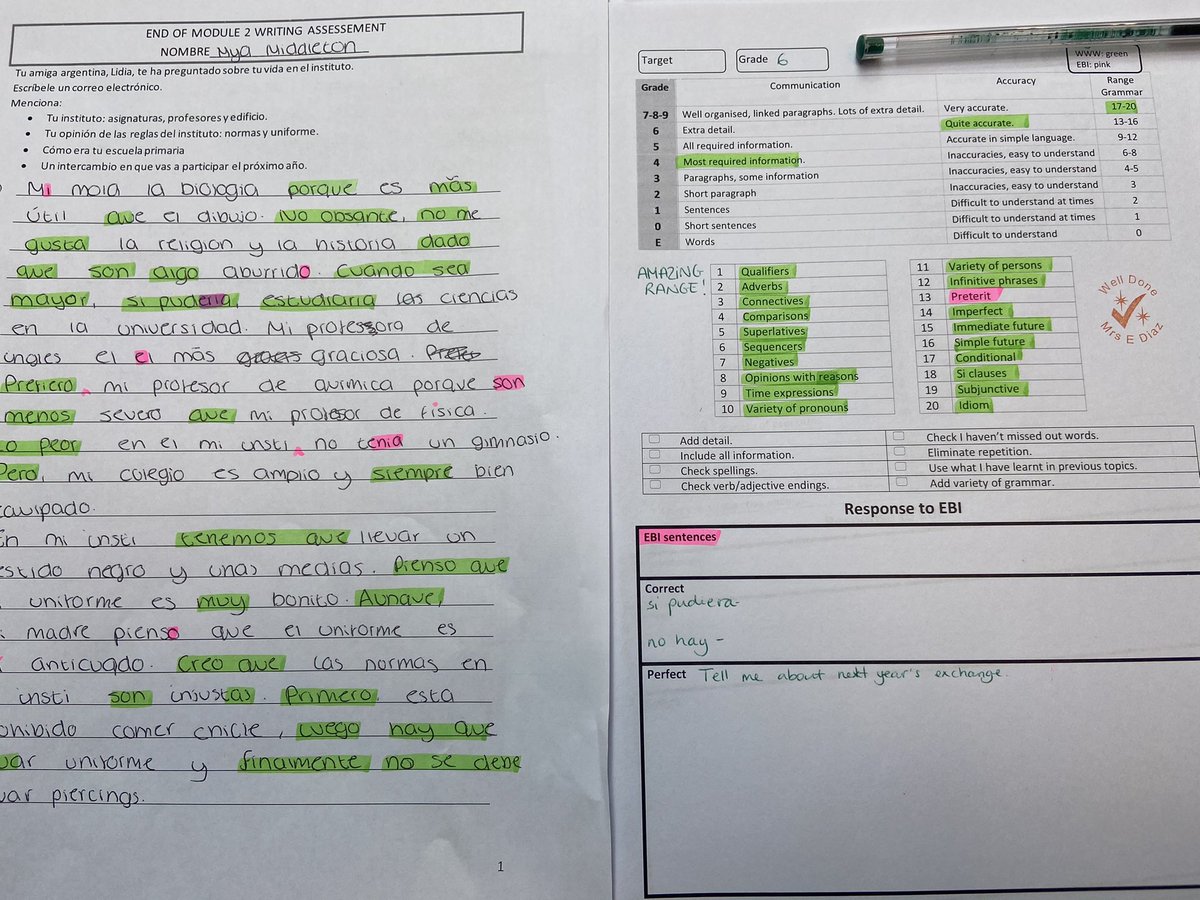 END OF MODULE 2 WRITING ASSESSEMENT
NOMBRE Mya Middleton
Tu amiga argentina, Lidia, te ha preguntado sobre tu vida en el instituto.
Escríbele un correo electrónico.
Menciona:
• Tu instituto: asignaturas, profesores y edificio.
• Tu opinión de las reglas del instituto: normas y uniforme.
• Cómo era tu escuela primaria
• Un intercambio en que vas a participar el próximo año.
Mi mola la biologia porque es más
útil que el dibujo. No obsante, no me
gusta la religion y la historia dado
que son algo aburrido. Cuándo sea
mayor, si puderia, estudiaria las ciencias
en la universidad. Mi professora de
ingles el el más graciosa.
Prefiero, mi profesor de quimica porque son
menos severo que mi profesor de fisica.
Lo peor en el mi insti, no tenia un gimnasio.
Pero, mi colegio es amplio y siempre bien
equipado.
En mi insti tenemos que llevar un
estido negro y unas medias. Pienso que
uniforme es muy bonito. Aunque,
madre pienso que el uniforme es
anticuado. Creo que las normas en
insti son injustas. Primero, esta
ohibido comer chicle, luego hay que
var uniforme y finalmente no se debe
var piercings.
1
Target
Grade 6
WWW: green
EBI: pink
Grade Communication Accuracy Range Grammar
7-8-9 Well organised, linked paragraphs. Lots of extra detail. Very accurate. 17-20
6 Extra detail. Quite accurate. 13-16
5 All required information. Accurate in simple language. 9-12
4 Most required information. Inaccuracies, easy to understand 6-8
3 Paragraphs, some information Inaccuracies, easy to understand 4-5
2 Short paragraph Inaccuracies, easy to understand 3
1 Sentences Difficult to understand at times 2
0 Short sentences Difficult to understand at times 1
E Words Difficult to understand 0
AMAZING RANGE!
1 Qualifiers
2 Adverbs
3 Connectives
4 Comparisons
5 Superlatives
6 Sequencers
7 Negatives
8 Opinions with reasons
9 Time expressions
10 Variety of pronouns
11 Variety of persons
12 Infinitive phrases
13 Preterit
14 Imperfect
15 Immediate future
16 Simple future
17 Conditional
18 Si clauses
19 Subjunctive
20 Idiom
Well Done
Mrs E Diaz
Add detail. Check I haven't missed out words.
Include all information. Eliminate repetition.
Check spellings. Use what I have learnt in previous topics.
Check verb/adjective endings. Add variety of grammar.
Response to EBI
EBI sentences
Correct
si pudiera-
no hay -
Perfect Tell me about next year's exchange.